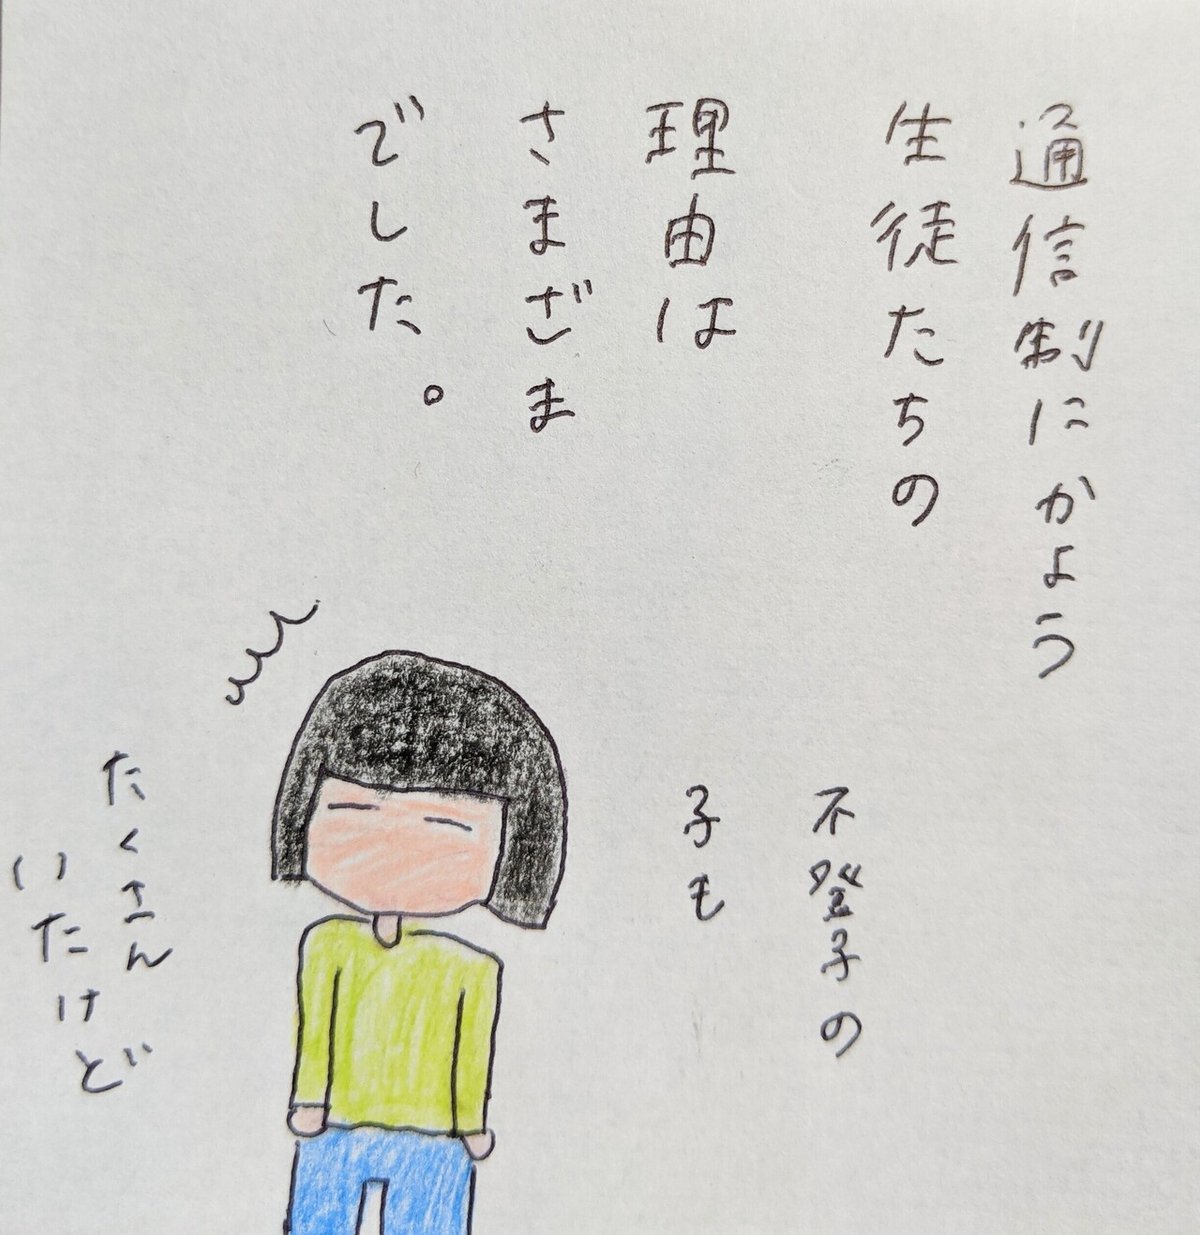 通信制にかよう
生徒たちの
理由は
さまざま
でした。
不登子の
子も
たくさん
いたけど